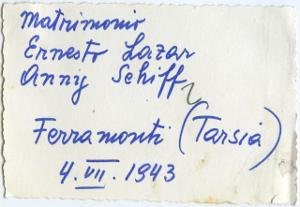 Matrimonio
Ernesto Lazar
Anny Schiff
Ferramonti (Tarsia)
4. VII. 1943